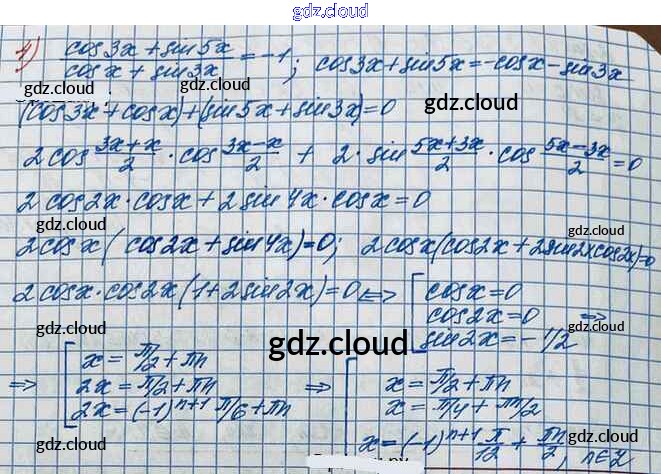 gdz.cloud
gdz.cloud
4) (cos3x + sin5x)/(cosx + sin3x) = -1; cos3x + sin5x = -cosx - sin3x
gdz.cloud
gdz.cloud
(cos3x + cosx) + (sin5x + sin3x) = 0
2cos (3x+x)/2 · cos (3x-x)/2 + 2·sin (5x+3x)/2 · cos (5x-3x)/2 = 0
gdz.cloud
2cos2x·cosx + 2sin4x·cosx = 0
gdz.cloud
gdz.cloud
2cosx(cos2x + sin4x) = 0; 2cosx(cos2x + 2sin2xcos2x) = 0
2cosx·cos2x(1 + 2sin2x) = 0 <=> [ cosx = 0
cos2x = 0 =>
sin2x = -1/2
gdz.cloud
gdz.cloud
gdz.cloud
=> [ x = π/2 + πn
2x = π/2 + πn
2x = (-1)^{n+1} π/6 + πn
=> [ x = π/2 + πn
x = π/4 + πn/2
x = (-1)^{n+1} π/12 + πn/2, n∈Z
gdz.cloud
gdz.cloud